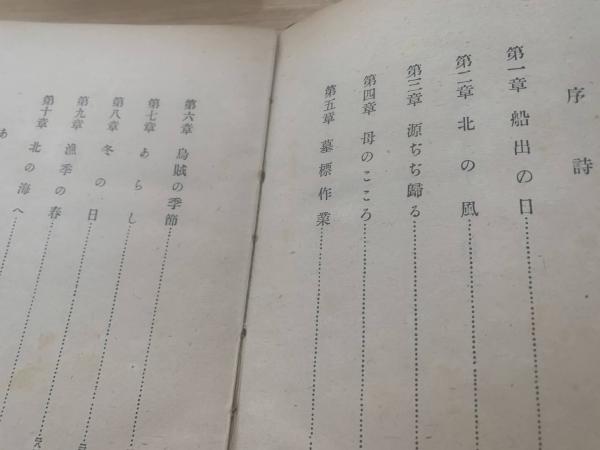 序詩
第一章 船出の日
第二章 北の風
第三章 源ぢぢ歸る
第四章 母のこころ
第五章 墓標作業
第六章 烏賊の季節
第七章 あらし
第八章 冬の日
第九章 漁季の春
第十章 北の海へ
あ